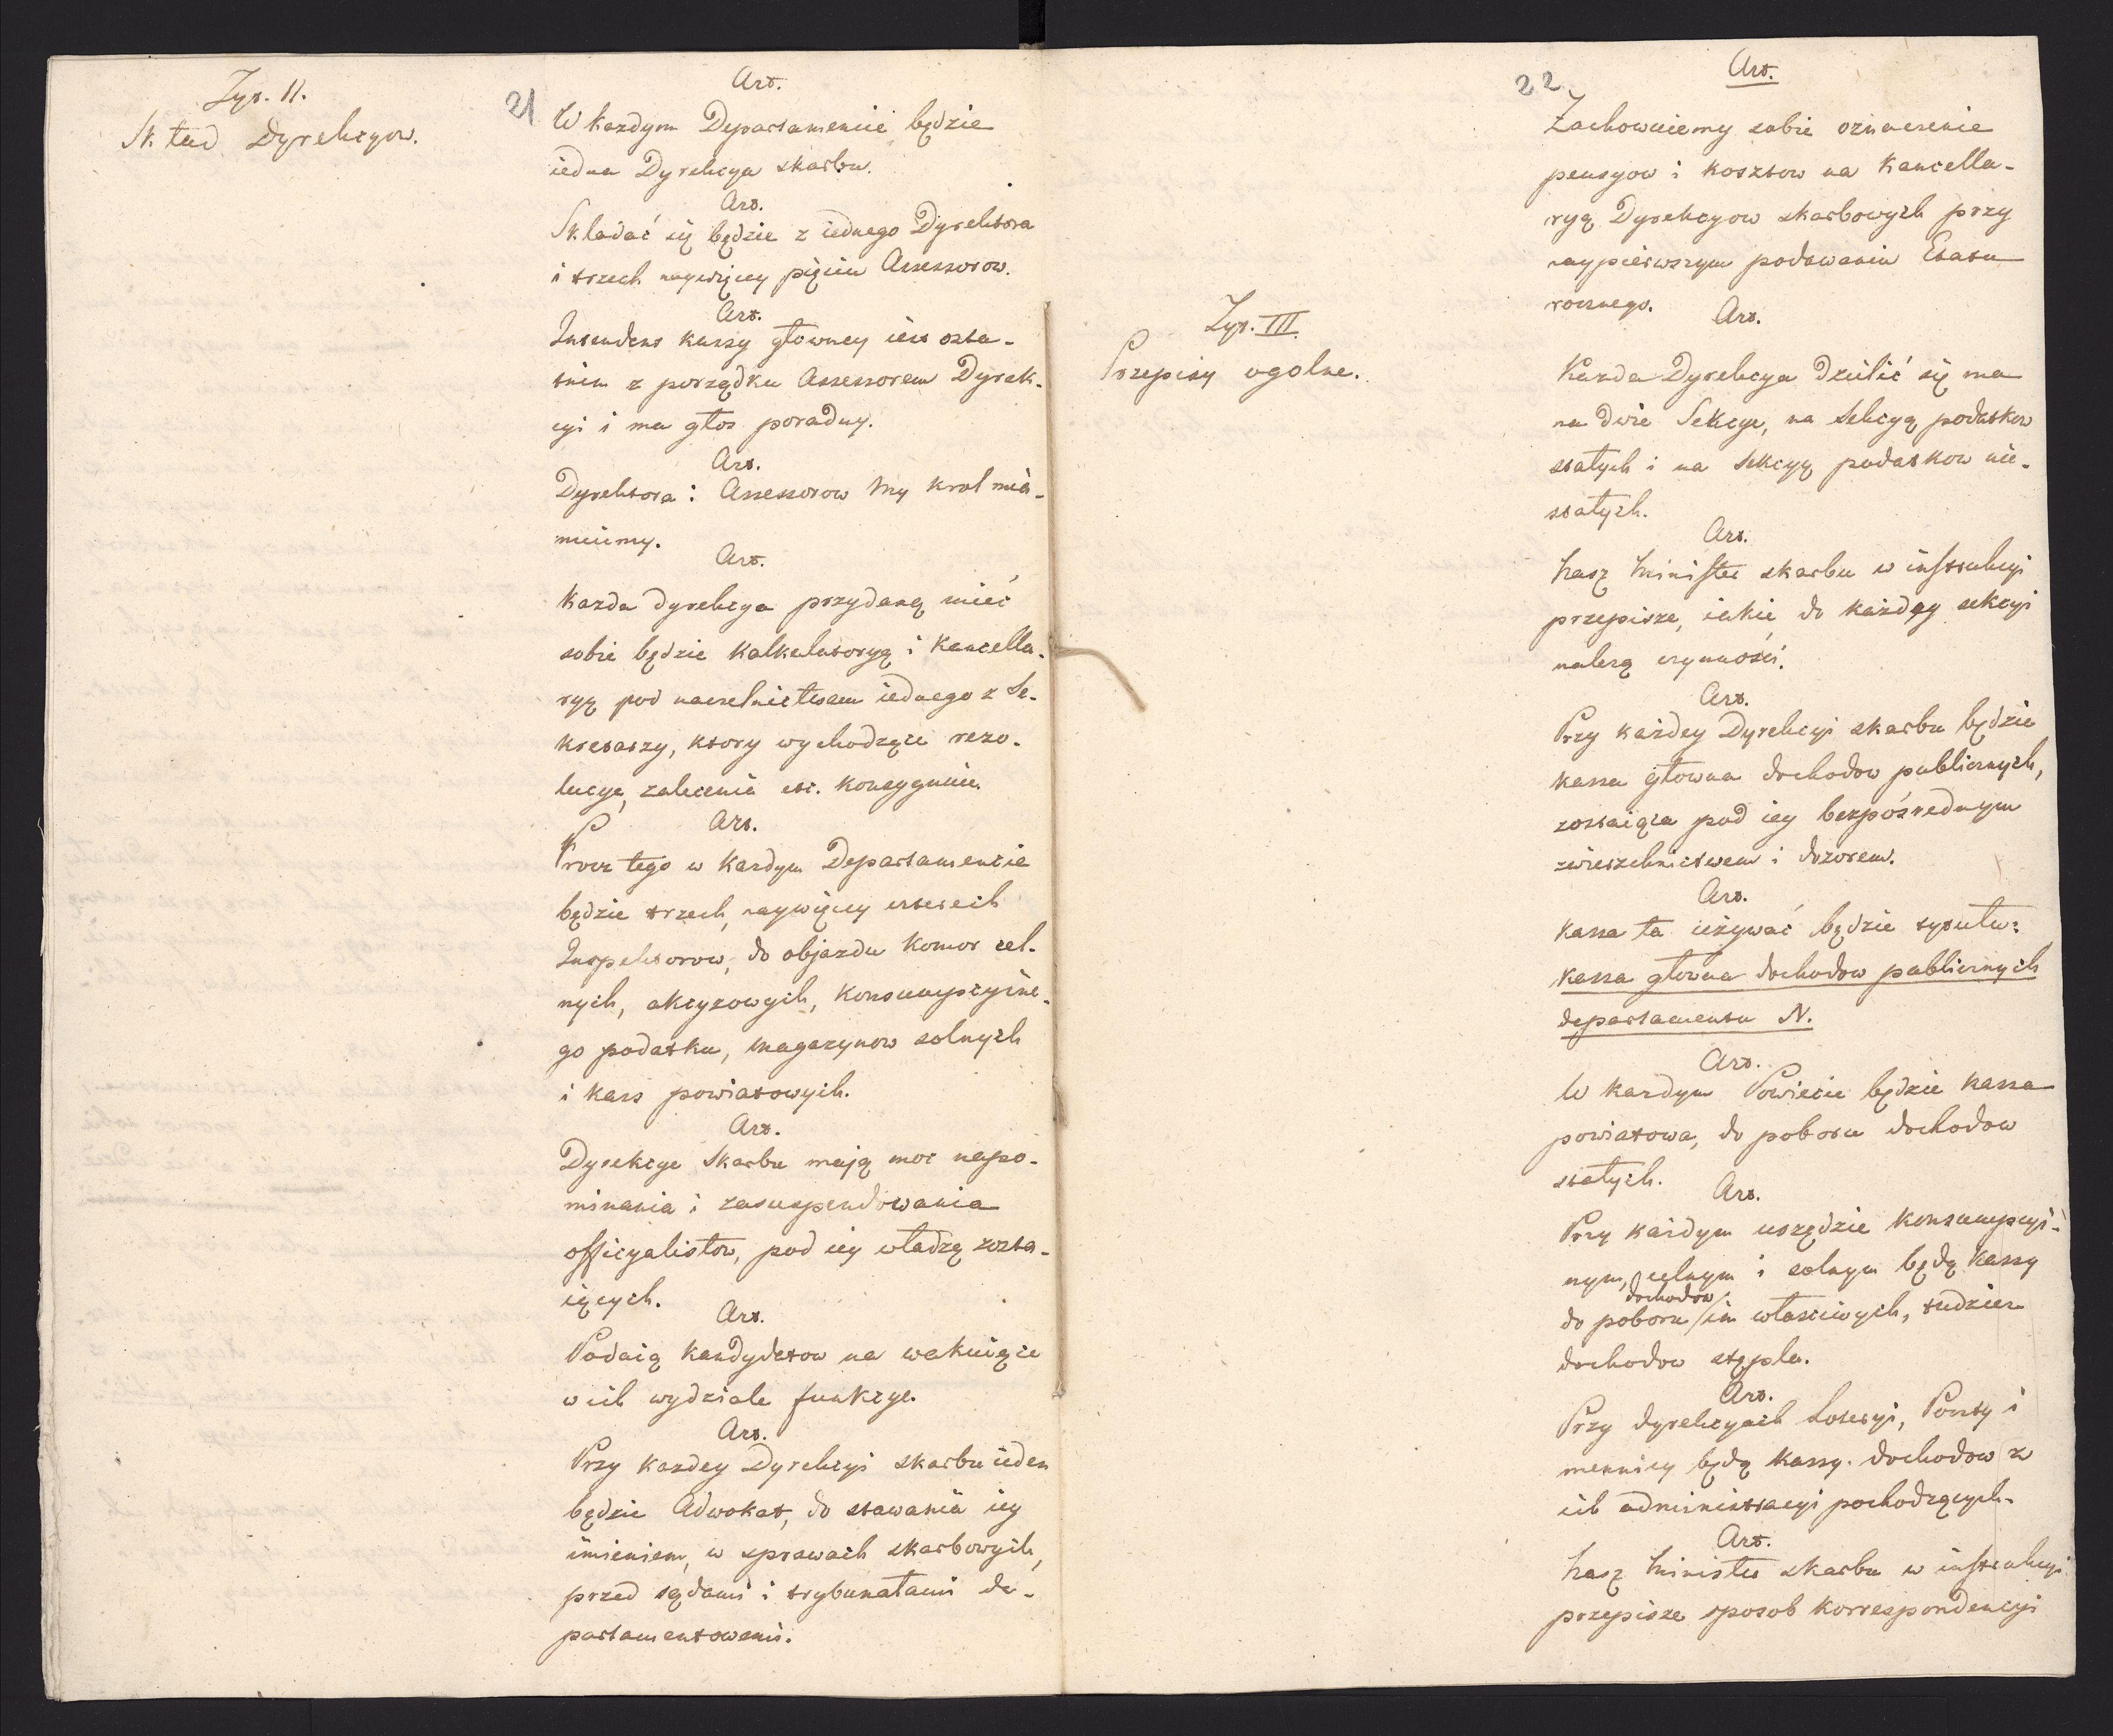 Tyt. II.
Skład Dyrekcyow.
21
Art.
W kazdym Departamencie będzie
iedna Dyrekcya skarbu.
Art.
Składać się będzie z iednego Dyrektora
i trzech naywięcey pięciu Assessorow.
Art.
Intendent kassy głowney iest osta-
tnim z porządku Assessorem Dyrek-
cyi i ma głos poradny.
Art.
Dyrektora i Assessorow My Krol mia-
nuiemy.
Art.
Kazda dyrekcya przydaną mieć
sobie będzie Kalkulatoryą i Kancella-
ryą pod naczelnictwem iednego z Se-
kretarzy, ktory wychodzące rezo-
lucye, zalecenia etc. konsygnuie.
Art.
Procz tego w Kazdym Departamencie
będzie trzech, naywięcey czterech
Inspektorow, do objazdu Komor cel-
nych, akcyzowych, Konsumpcyine-
go podatku, magazynow solnych
i kass powiatowych.
Art.
Dyrekcye Skarbu mają moc napo-
minania i zasuspendowania
officyalistow, pod iey władzą zosta-
iących.
Art.
Podaią Kandydatow na wakuiące
w ich wydziale funkcye.
Art.
Przy kazdey Dyrekcyi skarbu ieden
będzie Adwokat, do stawania iey
imieniem, w sprawach skarbowych,
przed sądami i trybunałami de-
partamentowemi.
22
Art.
Zachowuiemy sobie oznaczenie
pensyow i kosztow na Kancella-
ryą Dyrekcyow skarbowych przy
naypierwszym podawaniu Etatu
rocznego.
Art.
Tyt. III.
Przepisy ogolne.
Kazda Dyrekcya dzielić się ma
na dwie Sekcye, na Sekcyą podatkow
stałych i na Sekcyą podatkow nie-
stałych.
Art.
Nasz Minister skarbu w instrukcyi
przepisze, iakie do każdey sekcyi
należą czynności.
Art.
Przy każdey Dyrekcyi skarbu będzie
kassa głowna dochodow publicznych,
zostaiąca pod iey bezpośrednym
zwierzchnictwem i dozorem.
Art.
Kassa ta używać będzie tytułu:
Kassa głowna dochodow publicznych
departamentu N.
Art.
W kazdym Powiecie będzie kassa
powiatowa, do poboru dochodow
stałych.
Art.
Przy każdym urzędzie konsumpcyi-
nym, celnym i solnym będą kassy
dochodow
do poboru im właściwych, tudzież
dochodow stępla.
Art.
Przy dyrekcyach Loteryi, Poczty i
mennicy będą kassy dochodow z
ich administracyi pochodzących.
Art.
Nasz Minister skarbu w instrukcyi
przepisze sposob korrespondencyi